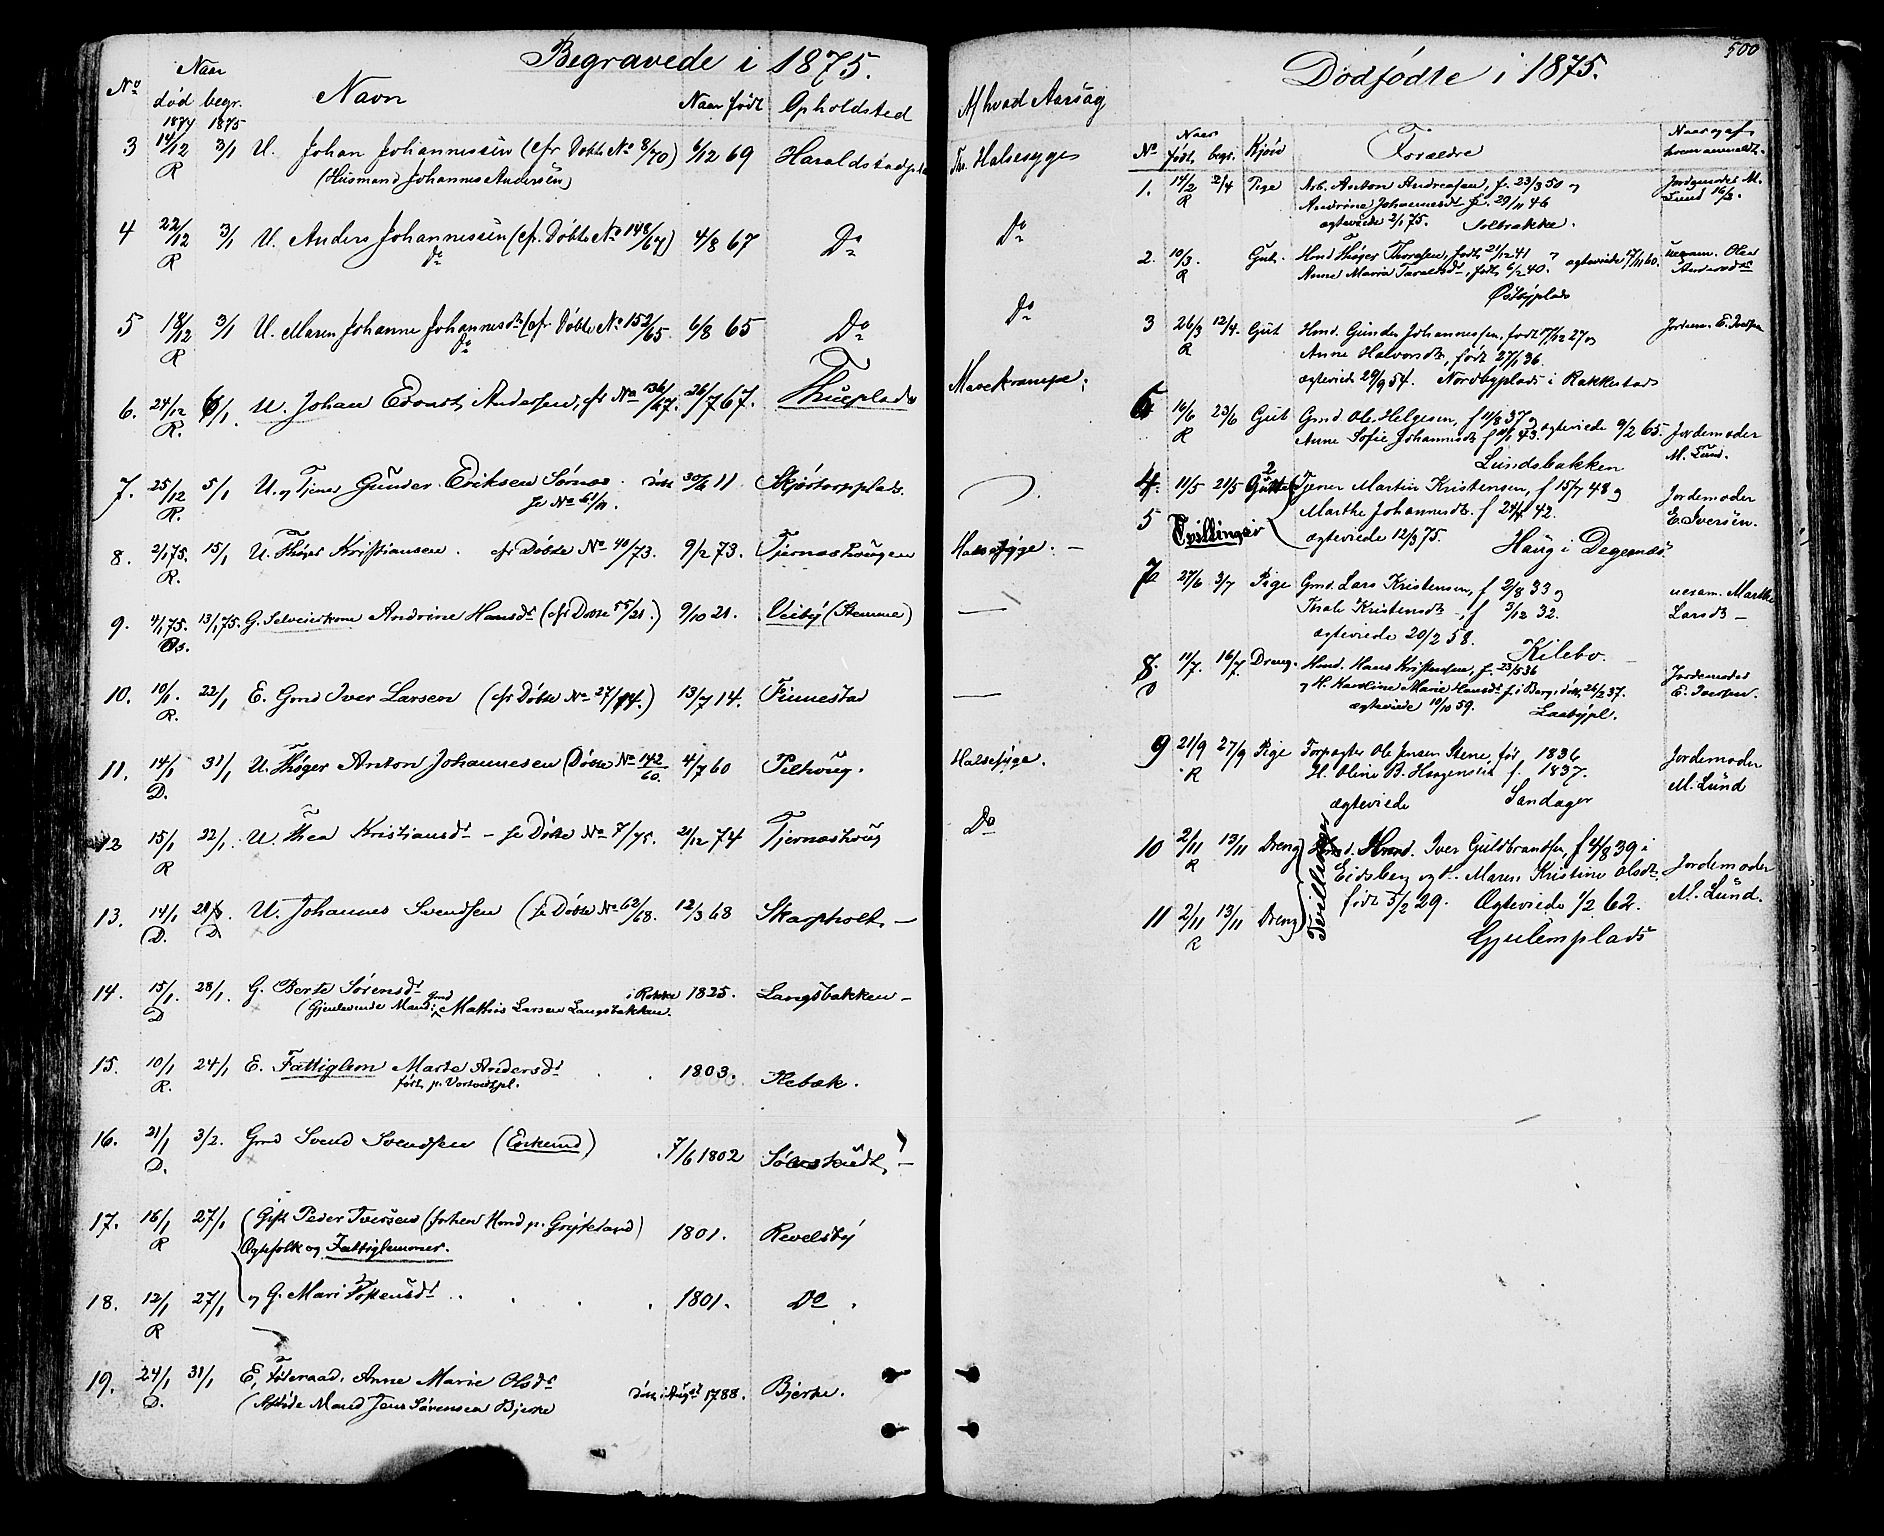 Begravede i 1875.
No Naar død begr. Navn Naar født Opholdsted Af hvad Aarsag
1874 1875
3 14/12 3/1 U. Johan Johannessen (cfr Døbte No 8/70) 6/12 69 Haraldstadpla Halsesyge
R (Husmand Johannes Andersen)
4 22/12 3/1 U. Anders Johannessen (cfr. Døbte No 148/67) 4/8 67 Do Do
R Do
5 18/12 3/1 U. Maren Johanne Johannesdt (cfr Døbte No 152/65 6/8 65 Do Do
R Do
6. 24/12 6/1 U. Johan Edvart Andersen, cfr No 136/67. 26/7 67. Thueplads Mavekrampe.
R.
7. 25/12 5/1 U. og Tjener Gunder Eriksen Sørnæs døbt 30/6 11 Skjøtorpplads.
R. se No 61/11.
8. 2/1 75. 15/1 U. Thøger Kristiansen. cfr Døbte No 40/73. 9/2 73. Tjernæshougen Halsesyge. —
R.
9. 4/1 75. 13/1 75. G. Selveierkone Andrine Hansdt (cfr Døbte 55/21.) 9/10 21. Veiby (Stemme) —
Ds.
10. 10/1. 22/1 E. Gmd Iver Larsen (cfr Døbte No 27/14.) 13/7 14. Finnestad —
R.
11. 14/1 31/1 U. Thøger Anton Johannesen (Døbte No 142/60. 4/7 60 Pilhoug. Halsesyge.
D.
12 15/1 22/1. U. Thea Kristiansdt – se Døbte No 7/75. 21/12 74 Tjernæshoug Do
R
13. 14/1 28/1. U. Johannes Svendsen (se Døbte No 62/68. 12/3 68 Skarpholt. –
D. D
14. 15/1. 28/1. G. Berte Sørensdt i Rakke 1825. Langsbakken –
D (Gjenlevende Mand: Gmd Mathis Larsen Langsbakken.
15. 10/1 24/1 E. Fattiglem Marte Andersdt 1803. Flebæk.
R. født p. Vortvedtpl.
16. 21/1 3/2. Gmd Svend Svendsen (Enkemd) 7/6 1802 Sølvskudt, –
D.
17. 16/1 27/1 (Gift Peder Iversen (forhen Hmd p. Grykeland) 1801. Revelsby
R Ægtefolk og Fattiglemmer.
18. 12/1 27/1 og G. Mari Torstensdt 1801. Do.
R
19. 24/1 31/1 E, Føderaad. Anne Marie Olsdt døbt i Augst 1788. Bjerke.
D. (Afdøde Mand Jens Sørensen Bjerke
500
Dødfødte i 1875.
No Naar født, begr. Kjøn Forældre Naar og af hvem anmeldt.
1. 14/2 2/4 Pige Arb. Anton Andreasen, f. 23/3 50 og Jordemoder M.
R Andrine Johannesdt f. 29/11 46 Lund 16/2.
ægteviede 2/1 75. Solbrække.
2. 10/3. Gut. Hmd Thøger Thoresen, født 21/12 41 og ægteviede 17/11 60. uexam. Olea
R Anne Maria Taraldsdt, født 6/2 40. Andersdt
Østbyplads
3 26/3 12/4. Gut Hmd. Gunder Johannessen, født 17/12 27 og Jordem. E. Iversen
R Anne Halvorsdt, født 27/1 36.
ægteviede 29/9 54. Nordbyplads i Rakkestad
6 16/6 23/6 Gut Gmd Ole Helgesen, f 11/8 37 og ægteviede 9/2 65. Jordemoder
R Anne Sofie Johannesdt f 11/1 43. M. Lund.
Lundsbakken
4. 11/5 21/5 2 Gutter Tjener Martin Kristensen, f 15/7 48 og Jordemoder
5 Tvillinger Marthe Johannesdt. f 24/4 42. E. Iversen.
ægteviede 12/3 75. Haug i Degernæs
7 27/6 3/7 Pige Gmd. Lars Kristensen, f 2/8 33 og uexam. Marthe
Thale Kristensdt, f 3/12 32. Larsdt –
ægteviede 20/2 58. Kilebo.
8. 11/7. 16/7. Dreng. Hmd. Hans Kristensen, f. 23/5 36 Jordemoder
D og H. Karoline Marie Hansdt f. i Berg, døbt 26/2 37. E. Iversen.
ægteviede 10/10 59. Laabypl.
9 21/9 27/9 Pige Forpagter Ole Jensen Stene, fød 1836 Jordemoder
R H. Oline B. Haagensdt f. 1837. M. Lund
ægteviede Sandager
10 2/11 13/11 Dreng Tvillinger Hmd. Iver Guldbrandsen, f 4/8 39 i Jordemoder
R Eidsberg og H. Maren Kristine Olsdt. M. Lund.
født 5/2 29. Ægteviede 1/2 62.
11 2/11 13/11 Dreng Gjulemplads
R